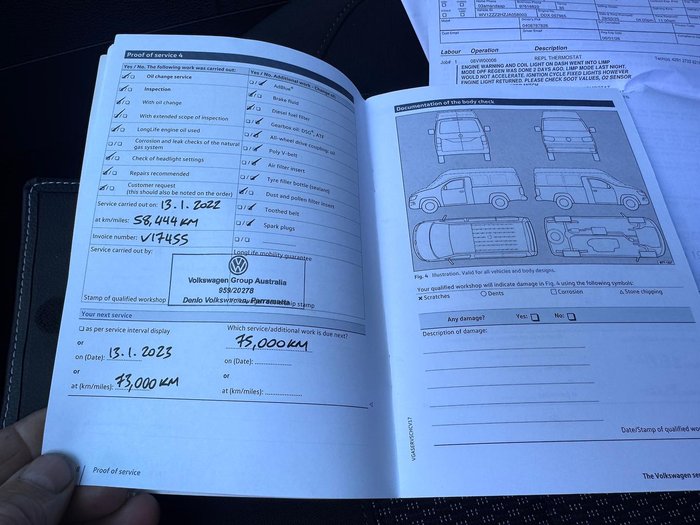 Proof of service 4
Yes / No. The following work was carried out:
Oil change service
Inspection
With oil change
With extended scope of inspection
LongLife engine oil used
Corrosion and leak checks of the natural
gas system
Check of headlight settings
Repairs recommended
Customer request
(this should also be noted on the order)
Service carried out on: 13.1.2022
at km/miles: 58,444 KM
Invoice number: V17455
Service carried out by:
Stamp of qualified workshop
Yes / No. Additional work - Change oil:
AdBlue®
Brake fluid
Diesel fuel filter
Gearbox oil: DSG®, ATF
All-wheel drive coupling: oil
Poly V-belt
Air filter insert
Tyre filler bottle (sealant)
Dust and pollen filter insert
Toothed belt
Spark plugs
LongLife mobility guarantee
Volkswagen Group Australia
959/20278
Denlo Volkswagen Parramatta
Your next service
as per service interval display
or
on (Date): 13.1.2023
or
at (km/miles): 73,000 KM
Which service/additional work is due next?
75,000 KM
on (Date):
or
at (km/miles):
Proof of service
Documentation of the body check
Fig. 4 Illustration. Valid for all vehicles and body designs.
Your qualified workshop will indicate damage in Fig. 4 using the following symbols:
x Scratches o Dents □ Corrosion △ Stone chipping
Any damage? Yes: No:
Description of damage:
Date/Stamp of qualified
VGASERVSCHCV17
The Volkswagen
Labour Operation Description
Job# 1 0EVW00006 REPL THERMOSTAT
ENGINE WARNING AND COIL LIGHT ON DASH WENT INTO LIMP
MODE DPF REGEN WAS DONE 2 DAYS AGO. LIMP MODE LAST NIGHT,
WOULD NOT ACCELERATE. IGNITION CYCLE FIXED LIGHTS HOWEVER
ENGINE LIGHT RETURNED. PLEASE CHECK SOOT VALUES, O2 SENSOR